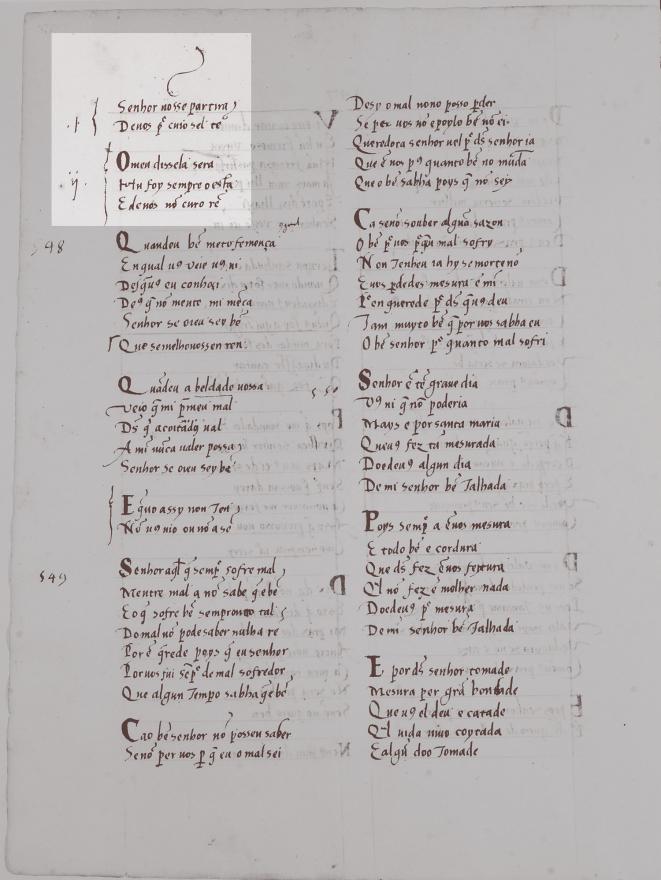 Senhor nosse partira
Deuos p̃ cuio sel te
Omeu dissela sera
Edeuos nõ curo rẽ
548
Quandeu bẽ
Enqual uꝯ veie uꝯ ui
Desq̃uꝯ eu conhoci
Deꝯ q̃ nõ mente, mi
Senhor se oieu sey bẽ
Que semelhouossen ren
Quãdeu a beldade uossa
Veio q̃ mi p̃meu mal
Dꝯ q̃ a ual
A mi nũca ualer possa
Senhor se oieu sey bẽ
E quo assy non
549
Senhor q̃ semp̃ sofre mal
Mentre mal a nõ sabe q̃ e bẽ
E o q̃ sofre bẽ sempr tal
Do mal nõ pode saber nulha re
Por ẽ q̃rede poys q̃ eu senhor
Por uos fui de mal sofredor
Que algun tempo sabha q̃ e bẽ
Ca o bẽ senhor nõ posseu saber
Senõ per uos p q̃ eu o mal sei
Desy o mal nono posso p̃der
Se per uos nõ e poylo bẽ nõ ei
Queredora senhor uel p̃ dꝯ senhor ia
Que ẽ uos pꝯ quanto bẽ no
Que o bẽ sabha poys q̃ nõ sey
Ca se nõ souber algũa sazon
O bẽ p̃ uos mal sofry
Non tenheu ia hy se morte nõ
E uos perdedes mesura ẽ mi
Por en querede p̃ dꝯ q̃ uꝯ deu
Tam muyto bẽ q̃ por uos sabba eu
O bẽ senhor p̃ quanto mal sofri
Senhor e tẽ graue dia
Vꝯ ui q̃ nõ poderia
Mays e por santa maria
Que uꝯ fez tã mesurada
Doedeuꝯ algun dia
De mi senhor bẽ talhada
Poys semp̃ a ẽ uos mesura
E todo bẽ e cordura
Que dꝯ fez ẽ uos feytura
Ql nõ fez ẽ molher nada
Doedeuꝯ p̃ mesura
De mi senhor bẽ talhada
E por dꝯ senhor tomade
Mesura per grã bondade
Que uꝯ el deu e catade
Ql uida uiuo coytada
E algũ doo tomade